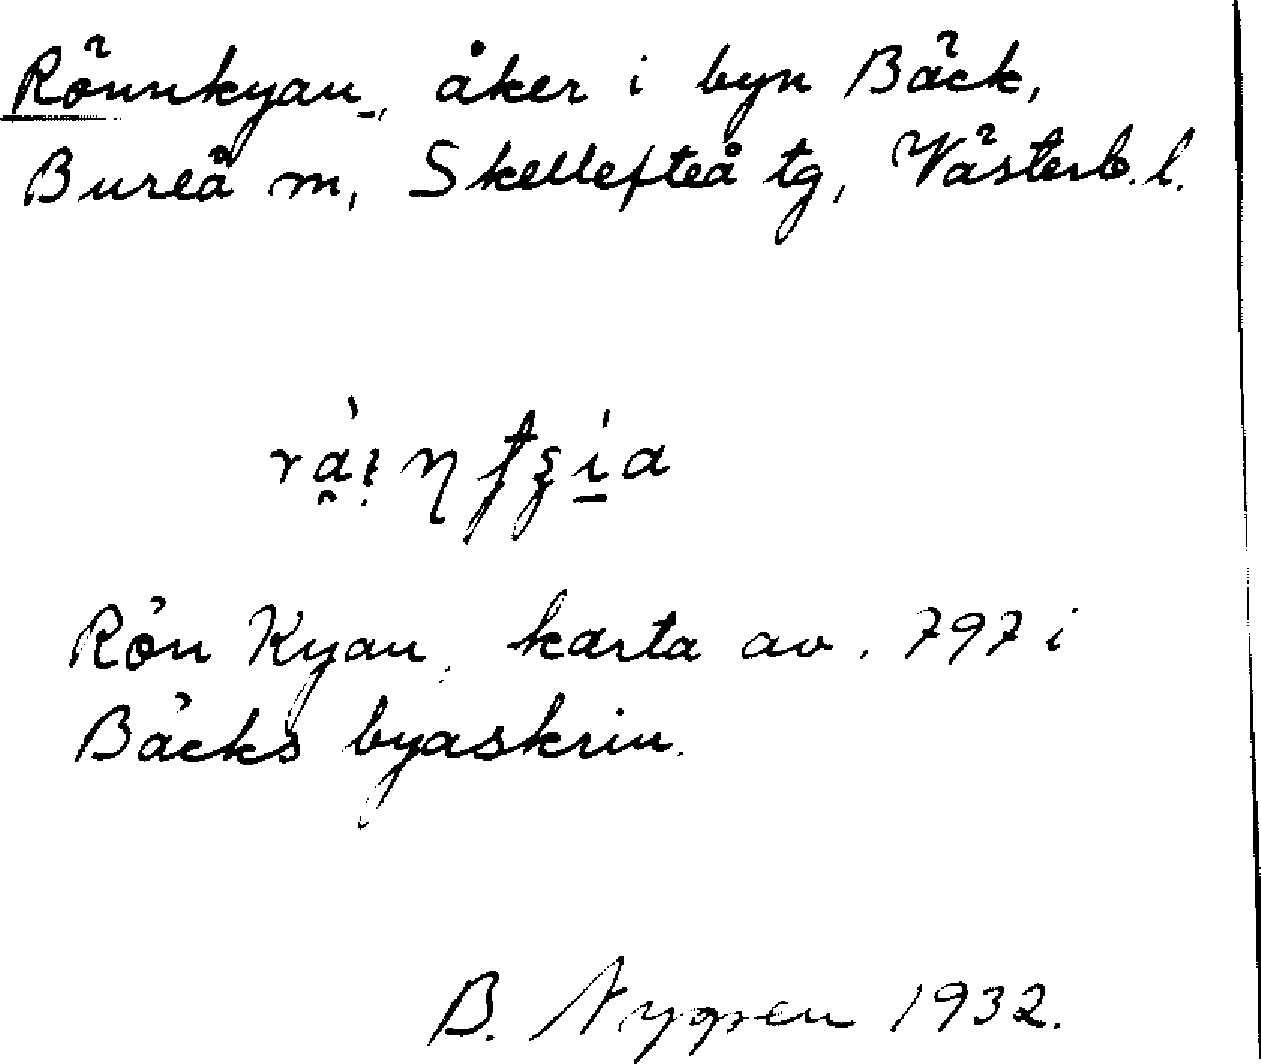 Rönnkyan, åker i byn Bäck,
Bureå m, Skellefteå tg, Västerb. l.
Rön Kyan, karta av. 797 i
Bäcks byaskrin.
B. Nygren 1932.